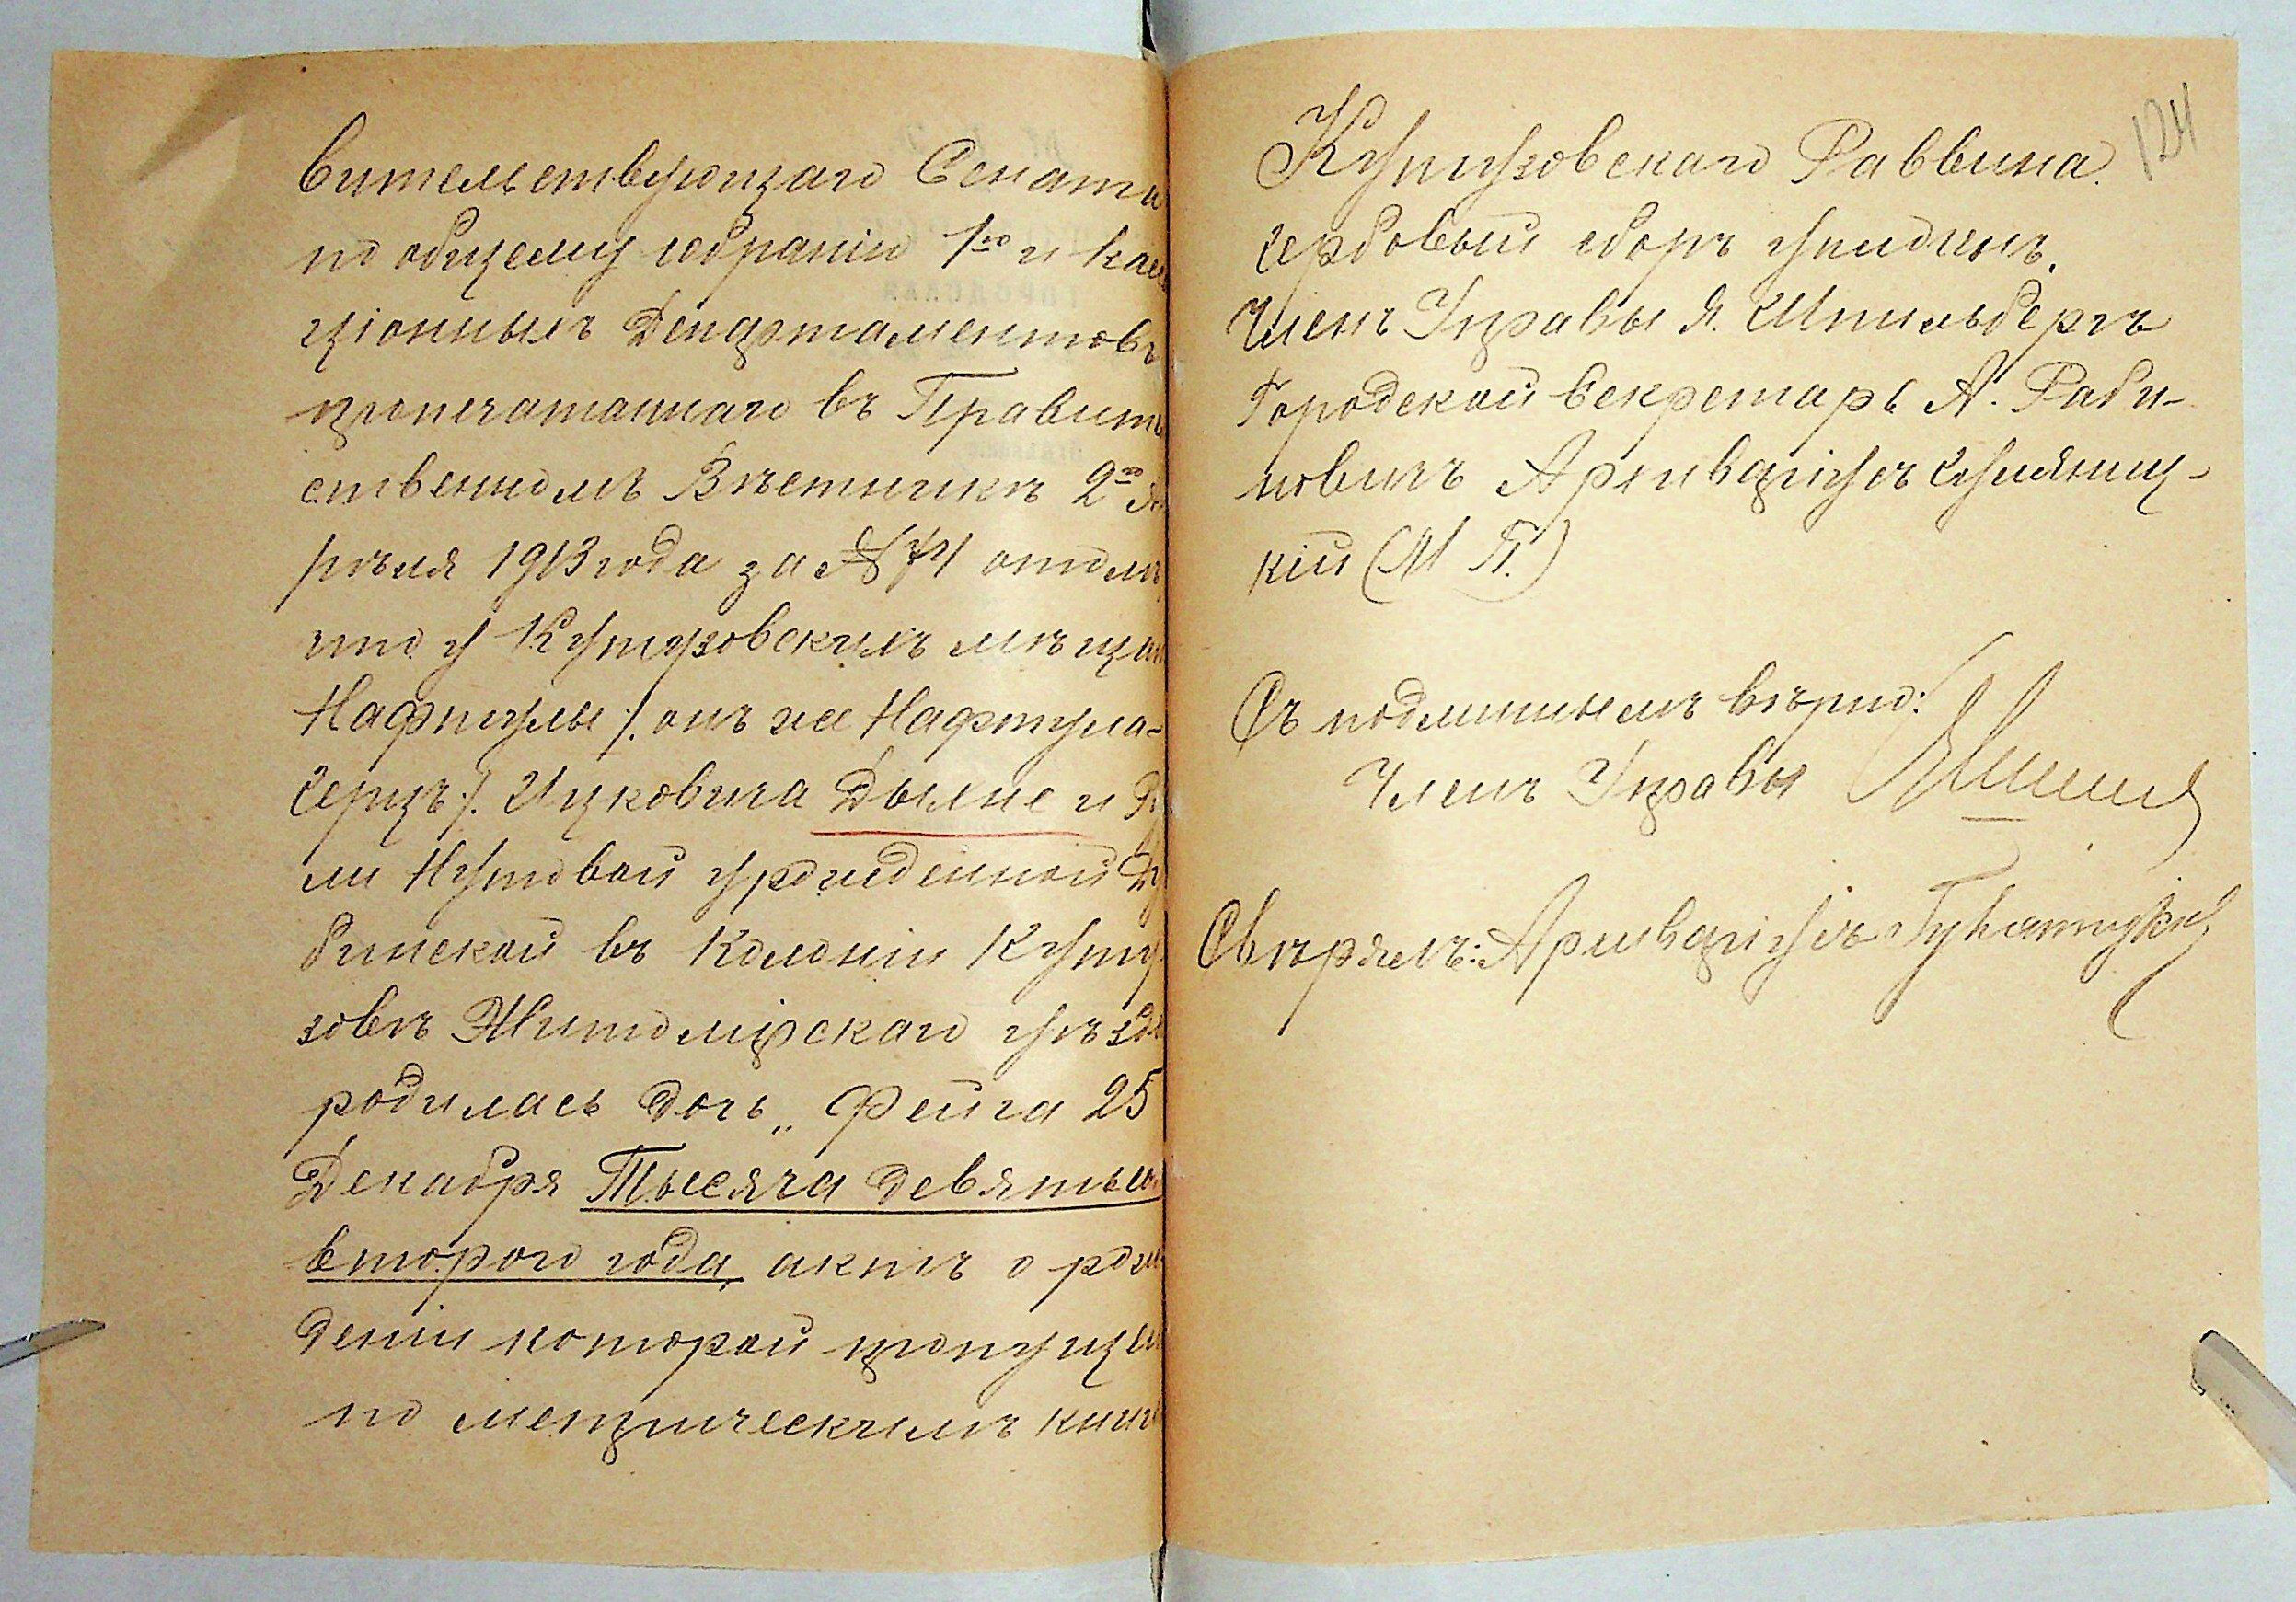 вительствующаго Сената
по общему собранію 1го и кас
ціонныхъ Департаментовъ
пропечатаннаго въ Правите
ственномъ Вѣстникѣ 2го А
рѣля 1913 года за № 74 о томъ
что у Кутузовскихъ мѣщан
Нафтулы /. онъ же Нафтула-
Герцъ ./. Ицковича Дыхне и Ру
ли Нутовой урожденной Ду
бинской въ Колоніи Куту
зовѣ Житомірскаго уѣзда
родилась дочь „ Фейга 25
Декабря Тысяча девятьсо
второго года, актъ о рож
деніи которой пропуще
по метрическимъ книг
124
Кутузовскаго Раввина.
гербовый сборъ уплоченъ.
Членъ Управы Я. Шпильбергъ
Городской Секретарь А. Раби-
новичъ Архиваріусъ Гумяниц-
кій (М П.)
Съ подлиннымъ вѣрно:
Членъ Управы
Свѣрялъ: Архиваріусъ